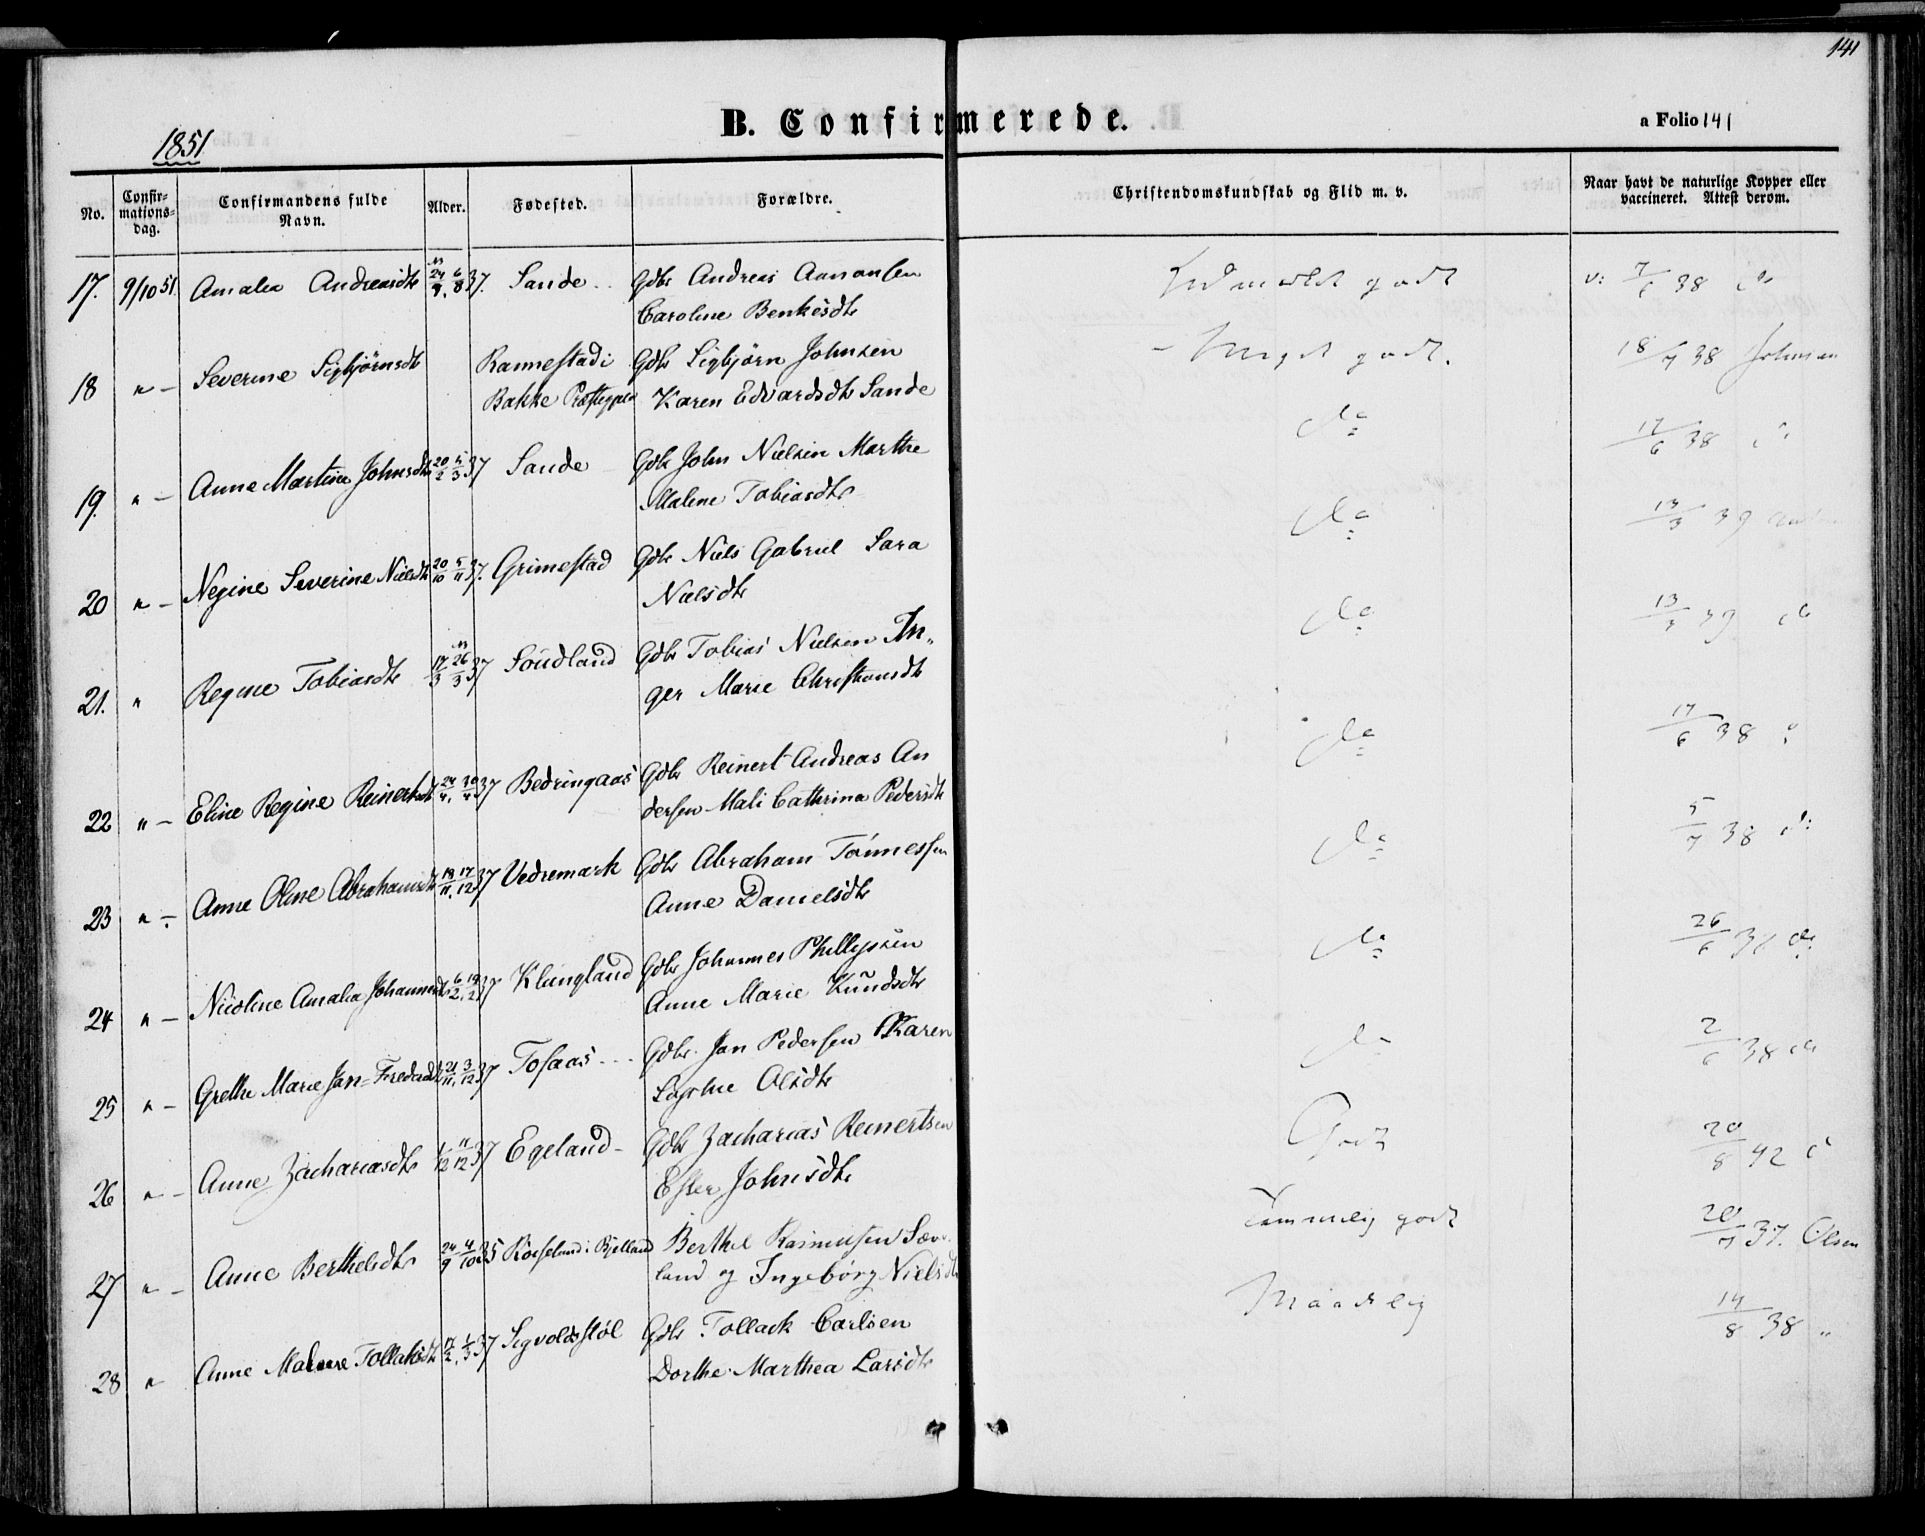 141
B. Confirmerede.
a Folio 141
1851
No.
Confirmations-dag.
Confirmandens fulde Navn.
Alder.
Fødested.
Forældre.
Christendomskundskab og Flid m. v.
Naar havt de naturlige Kopper eller vaccineret. Attest derom.
17. 9/10 51. Amalia Andreasdtr 37. Sande Gdbr Andreas Aanonsen
Caroline Benkesdtr
godt v: 38 do
18 " – Severine Sigbjørnsdt Rannestad i Gdbr Sigbjørn Johnsen
Bakke Præstegjeld Karen Edvardsdtr Sande
Meget godt. 18/7 38 Johnsen
19. " – Anne Martine Johnsdtr 20/2 5/3 37 Sande Gdbr John Nielsen Marthe
Malene Tobiasdtr
do 17/6 38 do
20 " – Negine Severine Nielsdtr 20/10 5/11 37. Grimestad Gdbr Niels Gabriel Sara
Nielsdtr
do 13/3 39
21. " Regine Tobiasdtr 17/3 26/3 37 Soudland Gdbr Tobias Nielsen In-
ger Marie Christensdtr
do 13/3 39 do
22 " – Eline Regine Reinertsdtr 24/4. 30/4 37 Bedringaas Gdbr Reinert Andreas An
dersen Mali Cathrina Pedersdtr
do 17/6 38 "
23 " – Anne Oline Abrahamsdtr 18/11. 17/12 37 Vedremark Gdbr Abraham Tönnessen
Anne Danielsdtr
do 5/7 38 do
24 " – Nicoline Amalia Johannesdtr 6/2. 19/2 37 Klungland Gdbr Johannes Phillipsen
Anne Marie Knudsdtr
do 26/6 do
25 " – Grethe Marie Jan-Fredsdtr 21/11. 3/12 37 Tosaas Gdbr. Jan Pedersen Karen
Sophie Olsdtr
do 2/6 38 do
26 " – Anne Zachariasdtr 1/12 11/12 37 Egeland – Gdbr Zacharias Reinertsen
Ester Johnsdtr
Godt 20/8 42
27 " – Anne Berthelsdtr 24/9 4/10 35 i Bjelland Berthel Rasmussen
land og Ingebörg Nielsdtr
Temmelig godt 20/7 37. Olsen
28 " Anne Malene Tollaksdtr 17/2. 1/3 37 Sigvoldsstøl Gdbr Tollack Carlsen
Dorthe Marthea Larsdtr
Maadelig 14/8 38 "